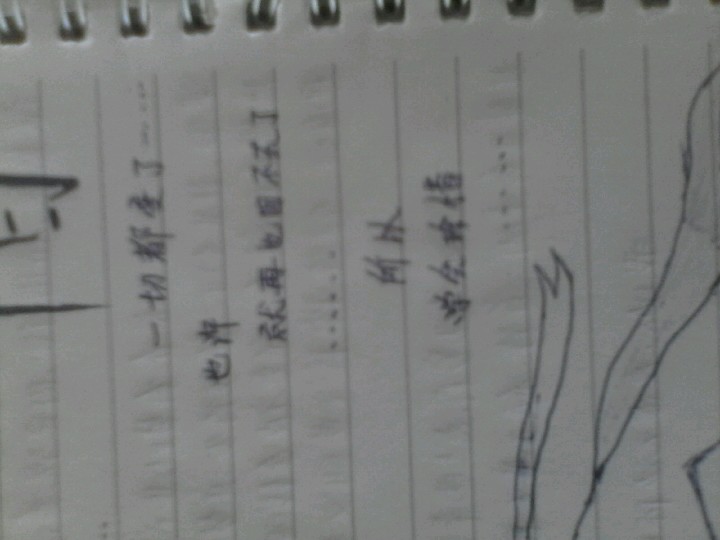 一切都变了……
也许
就再也回不去了
……
所以
学会珍惜
……